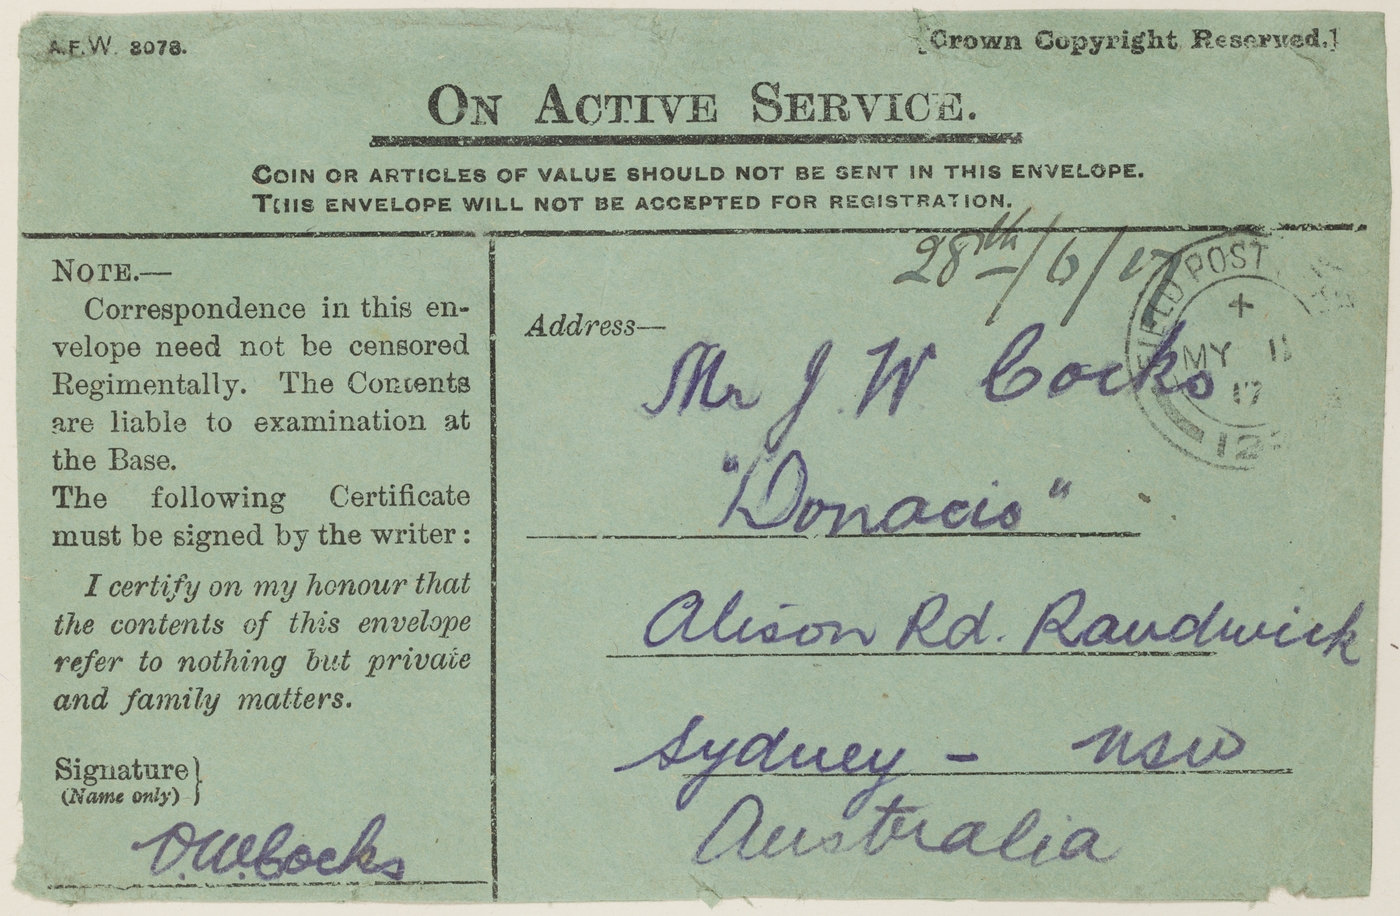 A.F.W. 3078.
[Crown Copyright Reserved.]
ON ACTIVE SERVICE.
COIN OR ARTICLES OF VALUE SHOULD NOT BE SENT IN THIS ENVELOPE.
THIS ENVELOPE WILL NOT BE ACCEPTED FOR REGISTRATION.
NOTE.—
Correspondence in this en-
velope need not be censored
Regimentally. The Contents
are liable to examination at
the Base.
The following Certificate
must be signed by the writer:
I certify on my honour that
the contents of this envelope
refer to nothing but private
and family matters.
Signature}
(Name only)
V.W. Cocks
28th/6/17
FIELD POST
MY
17
Address—
Mr J W Cocks
"Donacis"
Alison Rd. Randwick
Sydney - NSW
Australia